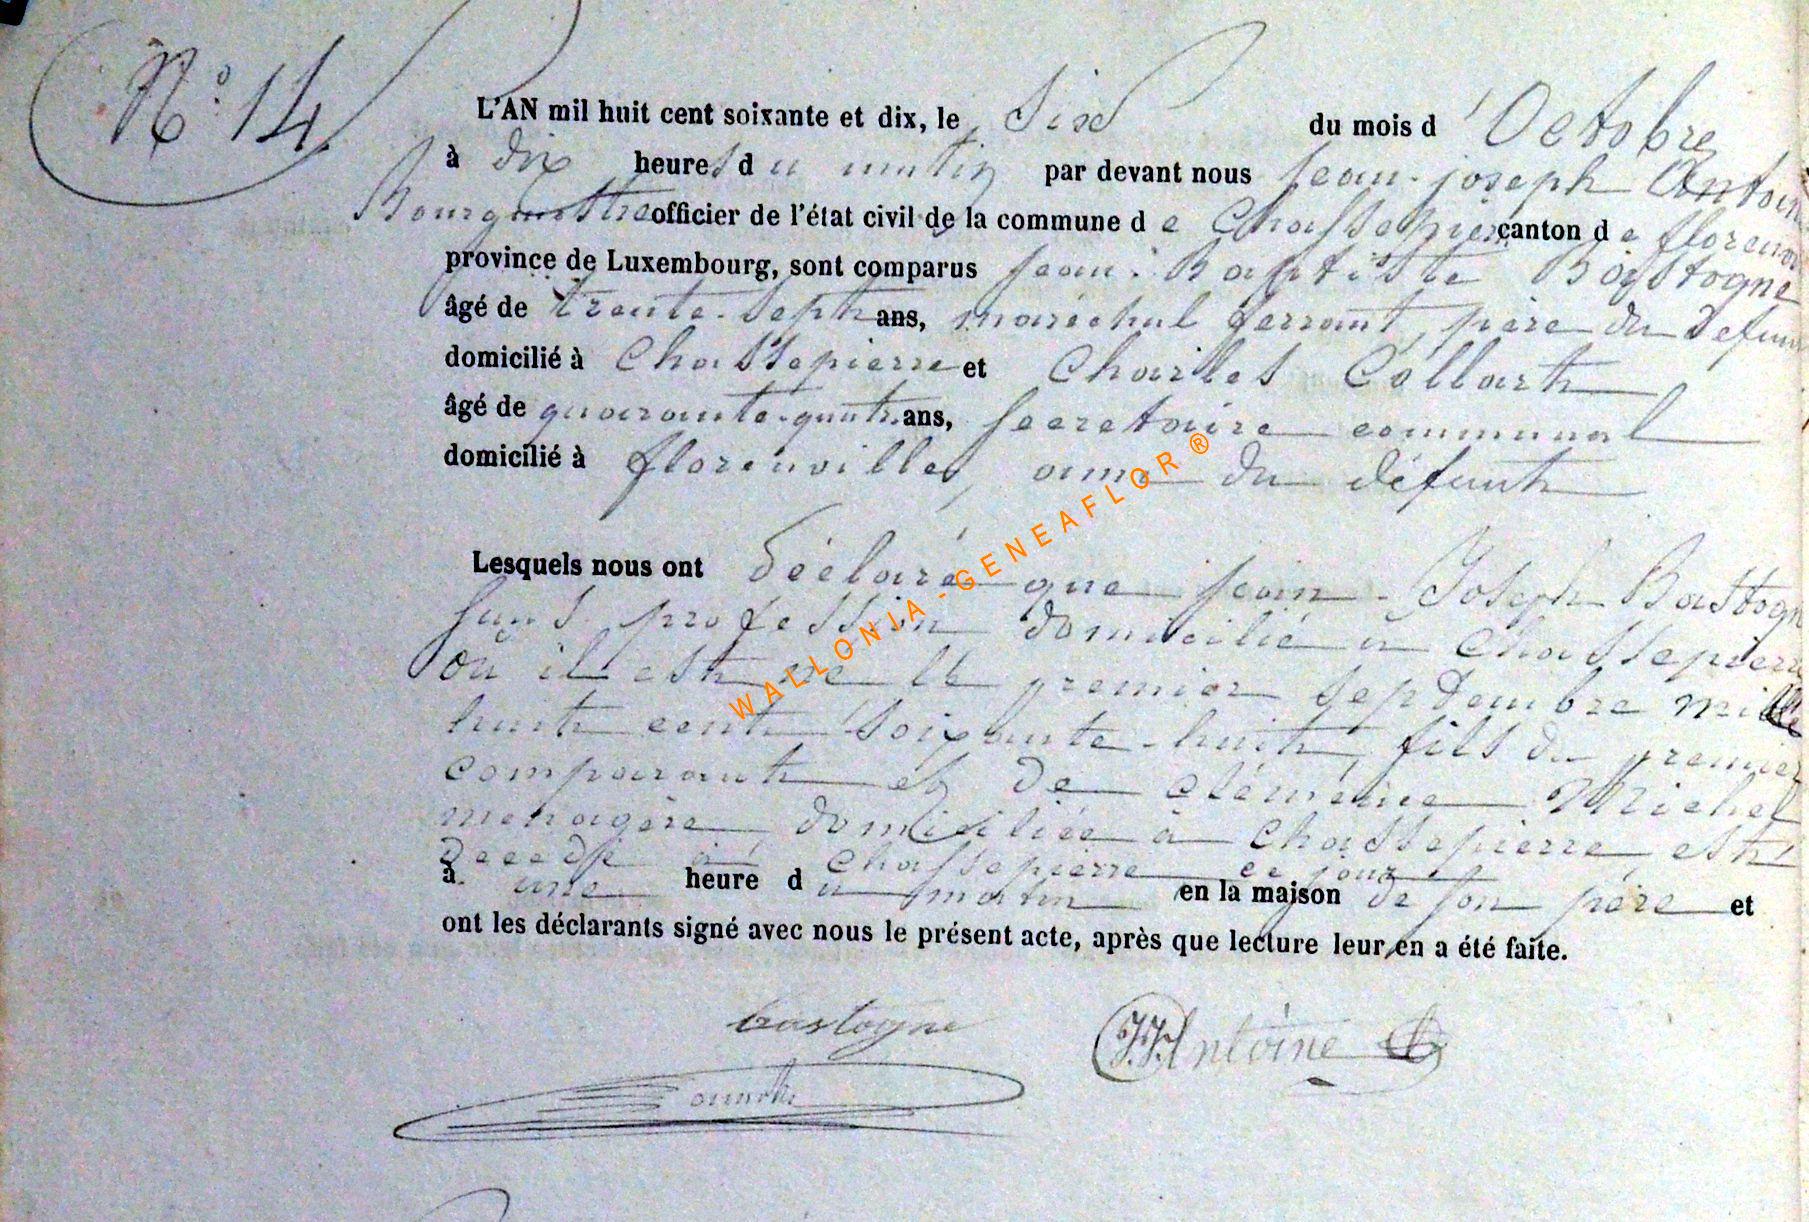 N° 14
L'AN mil huit cent soixante et dix, le Six du mois d'Octobre
à dix heures du matin par devant nous Jean-joseph Antoine
Bourgmestre officier de l'état civil de la commune de Chassepierre canton de florenville
province de Luxembourg, sont comparus jean-Baptiste Bastogne
âgé de trente-sept ans, maréchal ferrant, père du défunt
domicilié à Chassepierre et Charles Collart
âgé de quarante-quatre ans, Secretaire communal
domicilié à florenville, ami du défunt
Lesquels nous ont déclaré que jean-Joseph Bastogne
sans profession domicilié à Chassepierre
où il est né le premier septembre mille
huit cent soixante-huit, fils du premier
comparant et de clémence Michel
menagère domiciliée à Chassepierre est
decedé à Chassepierre ce jour
à une heure du matin en la maison de son père et
ont les déclarants signé avec nous le présent acte, après que lecture leur en a été faite.
bastogne
J.J. Antoine
WALLONIA-GENEAFLOR ®